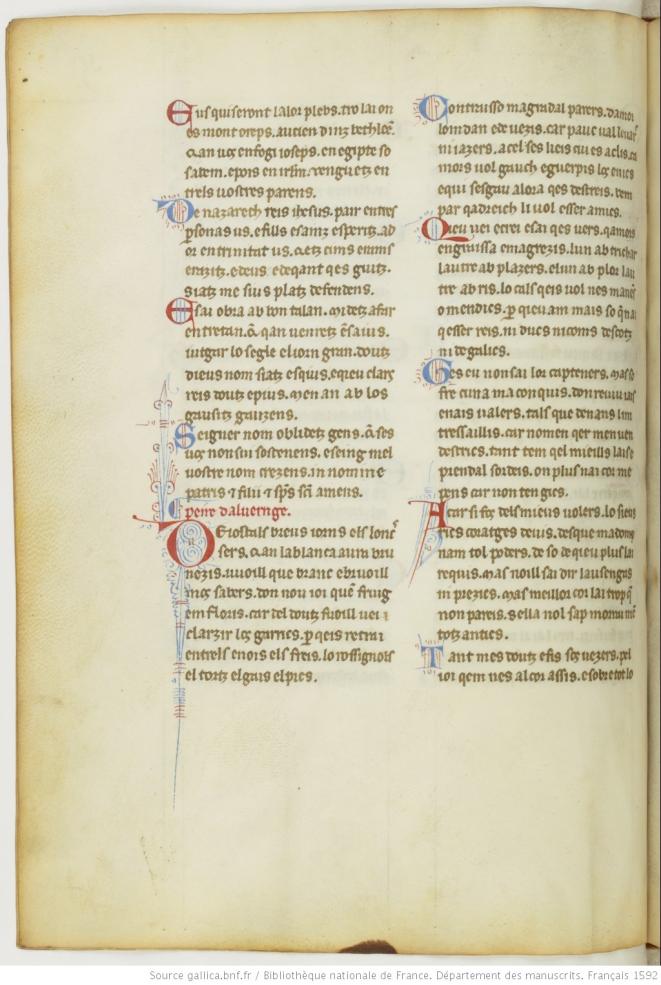 Eus qui seront lalor plebs. tro lai on
es mont oreps. aucien dinz bethleē.
& an uos en fogi ioseps. en egipte so
satem. e pois en irlm̄. renguetz en
trels uostres parens.
De nazareth reis ihesus. pair entres
personas us. e fills e sainz esperitz. ad
or en trinitat us. & etz cims e rams
e raitz. e deus e de qant qes guitz.
siatz me sius platz defendens.
Esai obra ab bon talan. midetz a far
en tretan. & qan uenretz ē saius.
iutgar lo segle el iorn gran. doutz
dieus nom siatz esquis. e qieu clars
reis doutz e pius. men an ab los
gausitz gauzens.
Seigner nom oblidetz gens. & ses
uos non sui sostenens. e seing mel
uostre nom crezens. in nomine
patris & filii & sps̄ sc̄i amens.
peire daluernge.
Deiostals breus iorns els loncs
sers. & an la blanca aura bru
nezis. uuoill que branc e bruoill
mos sabers. don nou ioi que fruig
em floris. car del doutz fuoill uei
clarzir los garrics. per qeis retrai
entrels enois els freis. lo rossignols
el tortz el gais el pics.
Contruisso magradal parers. damor
loindan e de uezis. car pauc ual leuar
ni iazers. a cel ses lieis cui es aclis. ca
mors uol gauch e guerpis los enics
e qui sesgau alora qes destreis. bem
par qa dreich li uol esser amics.
Qieu uei e crei e sai qes uers. qamors
engraissa e magrezis. lun ab trichar
lautre ab plazers. e lun ab plor lau
tre ab ris. lo cals qeis uol nes manen
o mendics. per qieu am mais so qn̄ai
qesser reis. ni ducs ni coms descotz
ni de galics.
Ges eu non sai los capteners. mas so
fre cuna ma conquis. don reuiu ias
e nais ualers. tals que denan lim
tressaillis. car nomen qer men uen
destrics. tant tem qel mieills laise
pren dal sordeis. on plus nai cor me
pens car non ten gics.
A car si fos dels mieus uolers. lo sieus
rics coratges deuis. desque ma domp
nam tol poders. de so de qieu plus lai
requis. mas noill sai dir lausengas
ni prezics. mas meillor cor lai trop q̄
non pareis. sella nol sap morrai mē
totz antics.
Tant mes doutz e fis sos uezers. pel
ioi qem ues al cor assis. e sobre tot lo